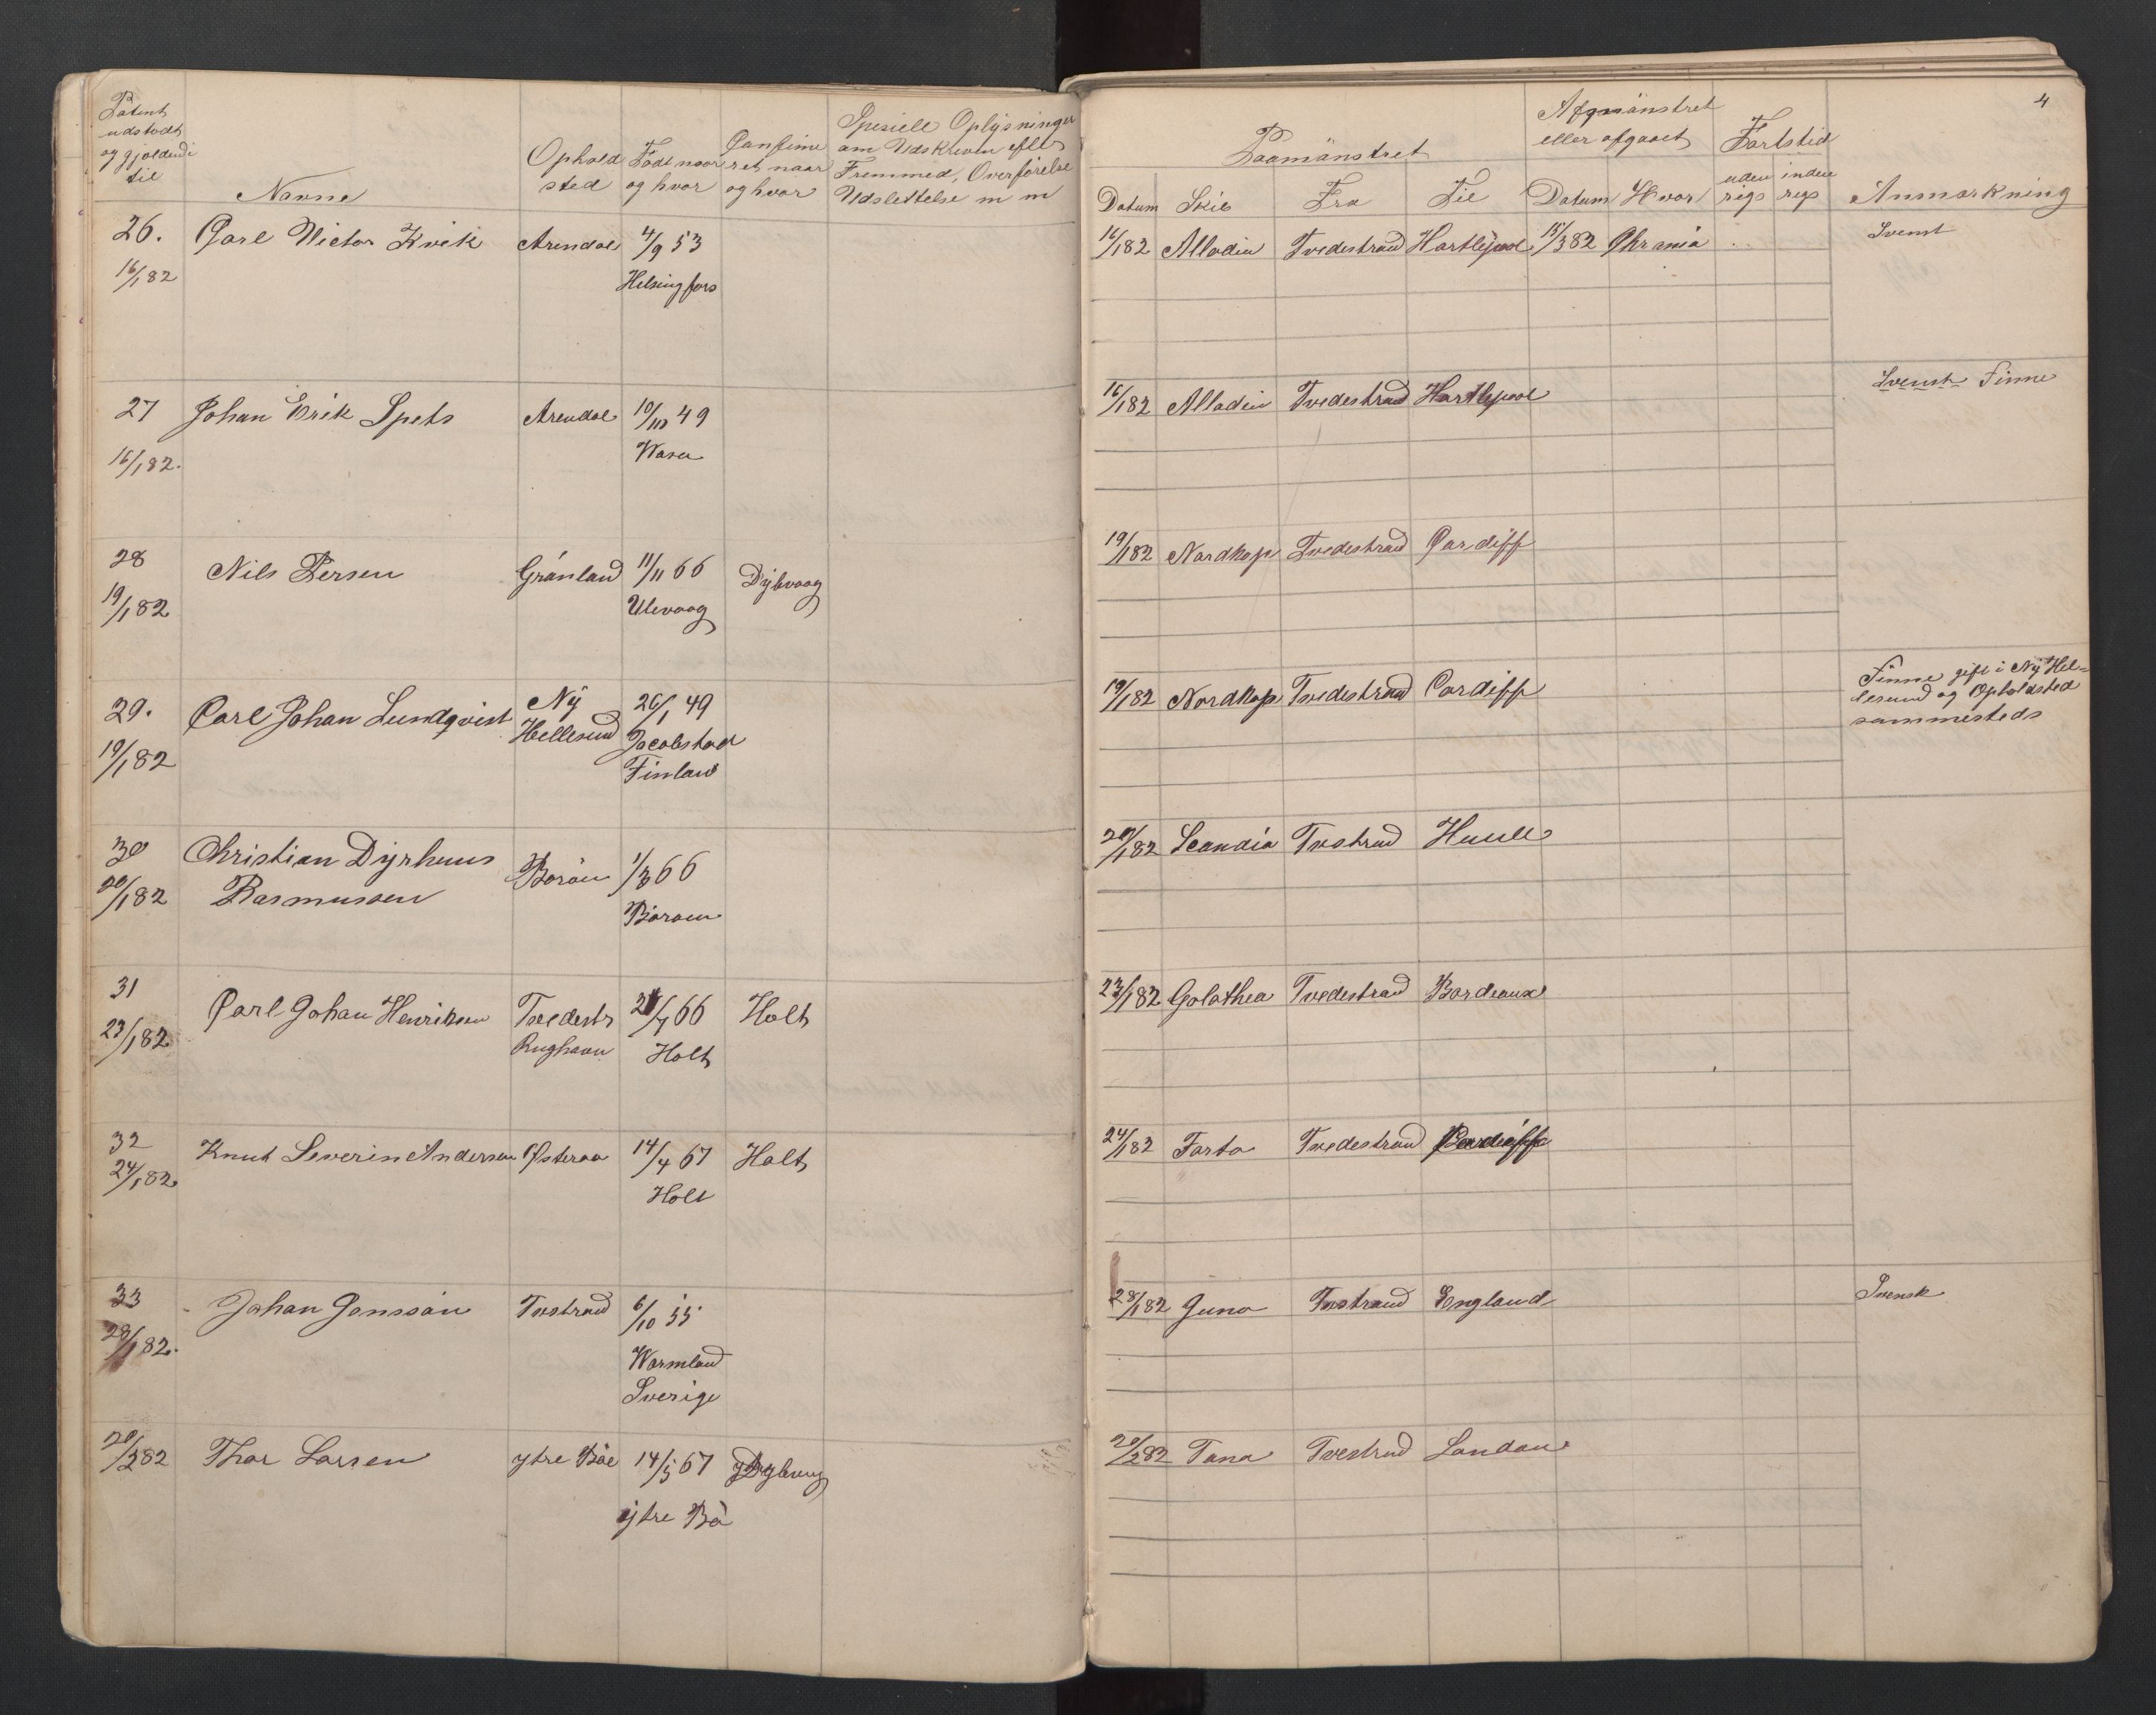 Patent
udstedt
og gjeldende
til
Navne
Ophold
sted
Födt naar
og hvor
Confirme
ret naar
og hvor
Spesiele Oplysninger
om Udskreven eller
Fremmed, Overförelse
Udslettelse m m
4
Paamönstret
Afmönstret
eller afgaaet
Fartstid
Datum Skib Fra Til Datum Hvor
uden
rigs
inden
rigs
Anmærkning
26. Carl Victor Kvik Arendal 4/9 53
16/1 82 Helsingfors
16/1 82 Alladin Tvedestrand Hartlepool 15/3 82 Chrania Svensk
27 Johan Erik Spets Arendal 10/10 49
16/1 82. Wasa
16/1 82 Alladin Tvedestrand Hartlepool Svensk Finne
28 Nils Persen Grönland 11/11 66 Dybvaag
19/1 82 Ulevaag
19/1 82 Nordkap Tvedestrand Cardiff
29. Carl Johan Lundqvist Ny
Hellesund
26/1 49
19/1 82 Jacobstad
Finland
19/1 82 Nordkap Tvedestrand Cardiff
Finne gift i Ny Hel=
lesund og Opholdsted
sammesteds
30 Christian Dyrhuus
20/1 82 Rasmussen
Boröen 1/3 66
Boröen
20/1 82 Scandia Tvestrand
31 Carl Johan Henriksen Tvedestr 21/7 66 Holt
23/1 82 Holt
23/1 82 Golathea Tvedestrand Bordeaux
32 Knut Severin Andersen Østeraa 14/4 67 Holt
24/1 82 Holt
24/1 82 Farta Tvedestrand Cardiff
33 Johan Jonsson Tvstrand 6/10 55
28/1 82. Warmland
Sverige
28/1 82 Juno Tvstrand England Svensk
20/2 82 Thor Larsen ytre Böe 14/5 67 Dybvaag
ytre Bö
20/2 82 Tana Tvestrand London